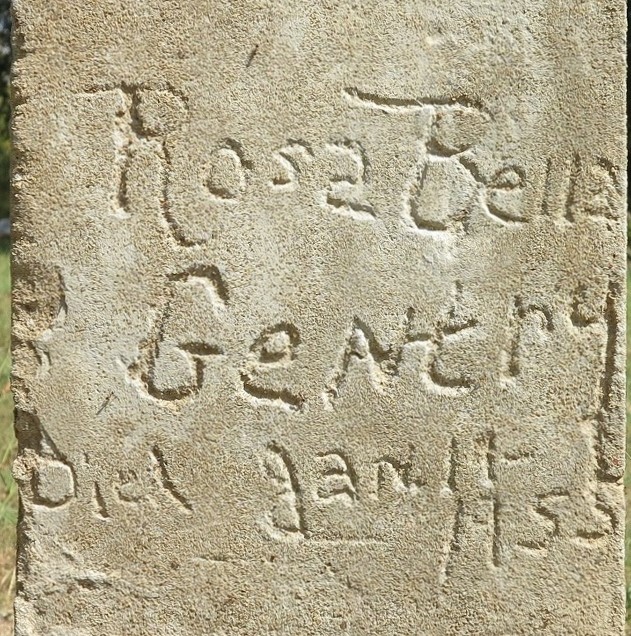 Rosa Bella
Gentry
Died Jan